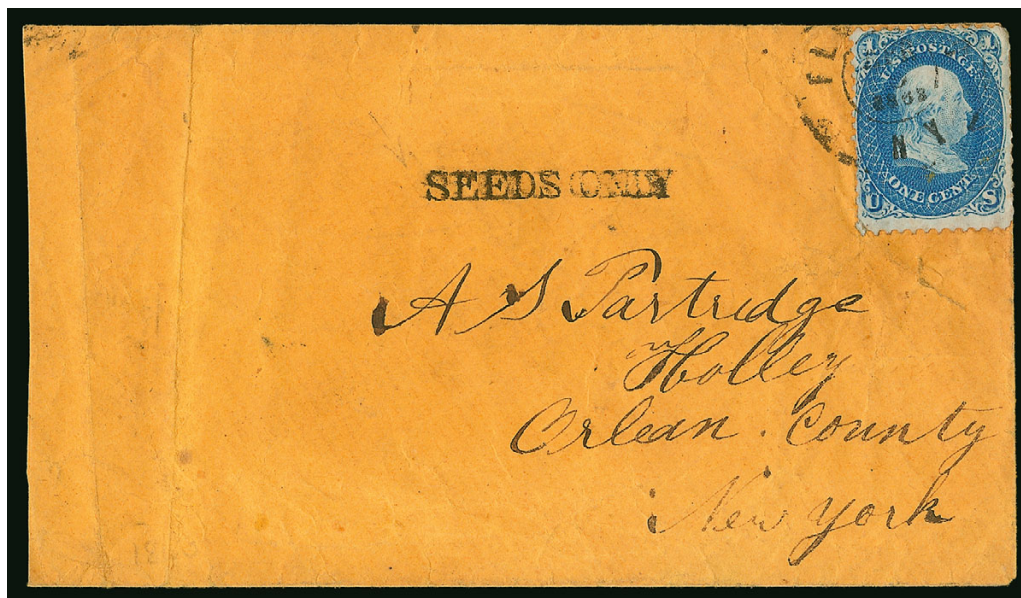 1 1
U.S. POSTAGE
N Y
ONE CENT
U S
SEEDS ONLY
A S Partridge
Holley
Orlean. County
New York